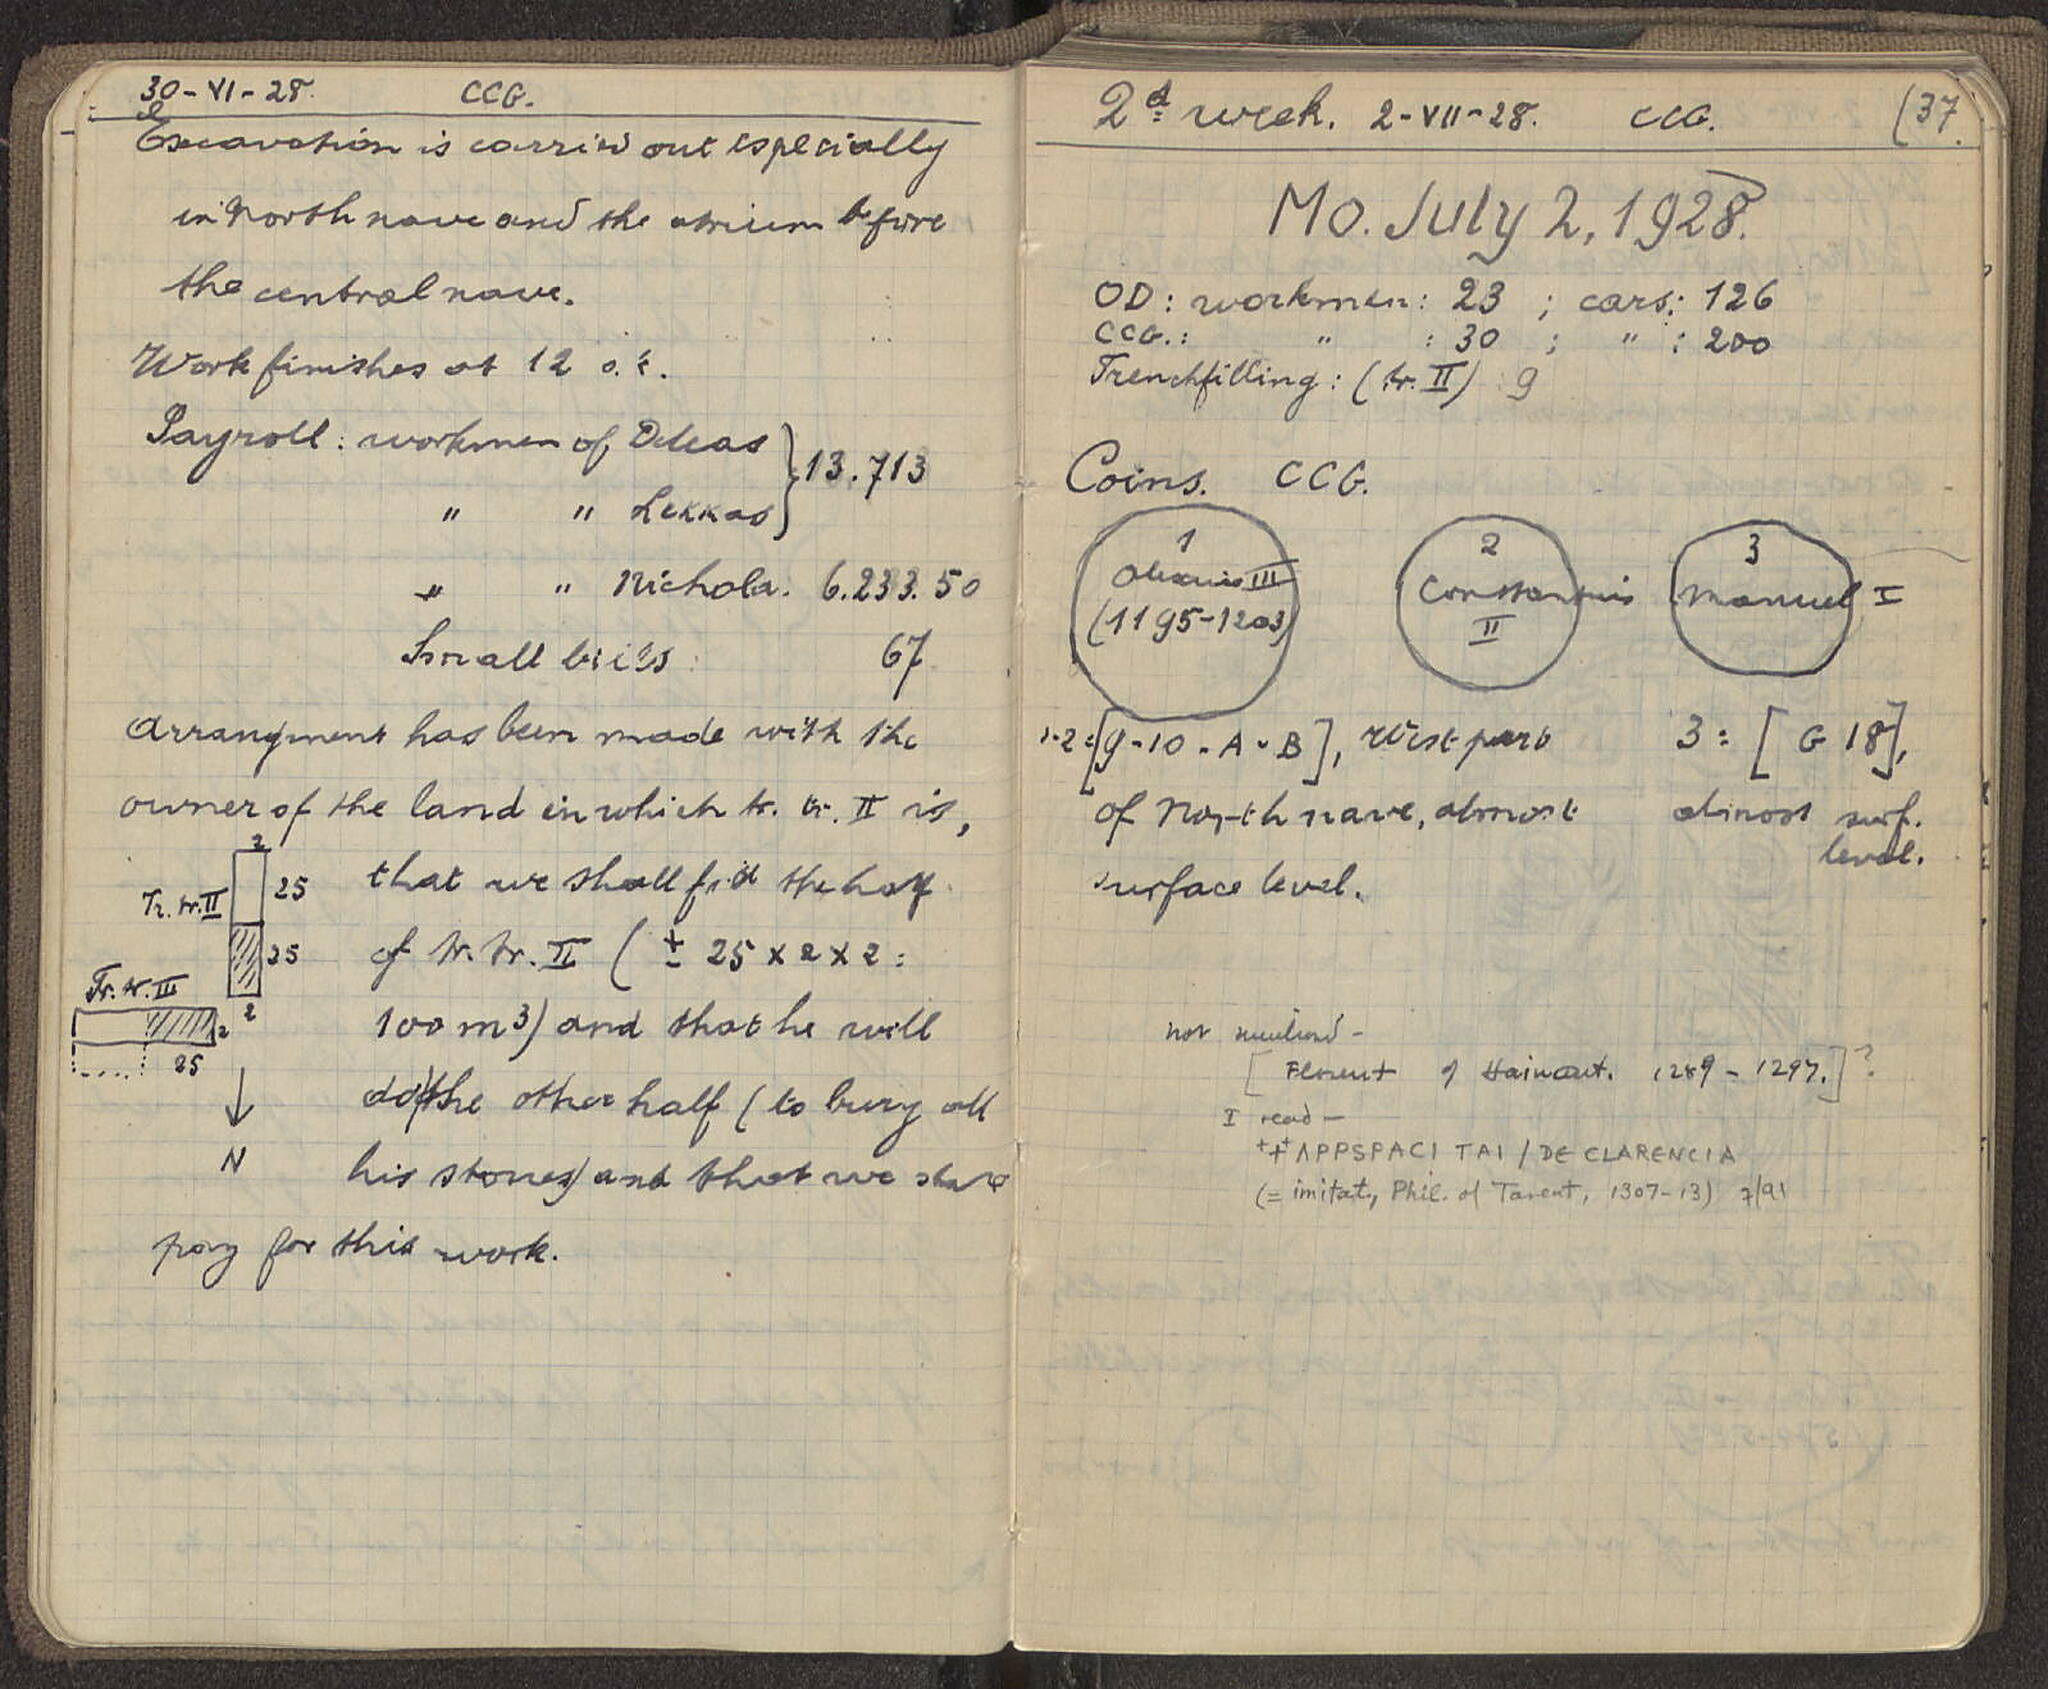 30-VI-28. CCG.
Excavation is carried out especially
in North nave and the atrium before
the central nave.
Work finishes at 12 o.c.
Payroll: workmen of Deleas } 13.713
" " Lekkas
" " Nichola. 6.233.50
Small bills: 67
Arrangment has been made with the
owner of the land in which tr. tr. II is,
that we shall fid the half
of tr. tr. II ( ± 25 x 2 x 2 =
100 m³) and that he will
do the other half (to bury all
his stones) and that we shall
pay for this work.
2
Tr. tr. II 25
25
2
Tr. tr. III
2
25
N
2d week. 2-VII-28. CCG. (37.
Mo. July 2, 1928.
OD: workmen: 23 ; cars: 126
CCG.: " : 30 ; " : 200
Trenchfilling: (tr. II) : 9
Coins. CCG.
1 Alexius III (1195-1203)
2 Constantinus II
3 Manuel I
1-2 = [9-10-A-B], West part
of North nave, almost
surface level.
3 = [G 18],
almost surf.
level.
not
[Florent of Hainaut. 1289-1297.]?
I read —
+‡+ ΛPPSPACI TAI / DE CLARENCIA
(= imitat., Phil. of Tarent, 1307-13) 7/91